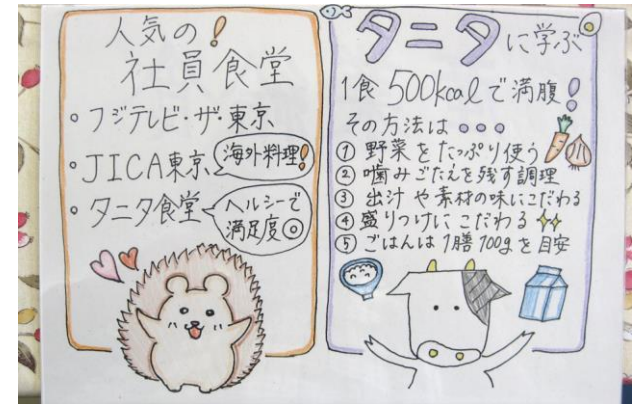 人気の!
社員食堂
。フジテレビ・ザ・東京
。JICA東京
海外料理!
。タニタ食堂
ヘルシーで
満足度◎
タニタに学ぶ
1食500kcalで満腹!
その方法は。。。
① 野菜をたっぷり使う
② 噛みごたえを残す調理
③ 出汁や素材の味にこだわる
④ 盛りつけにこだわる
⑤ ごはんは1膳100gを目安